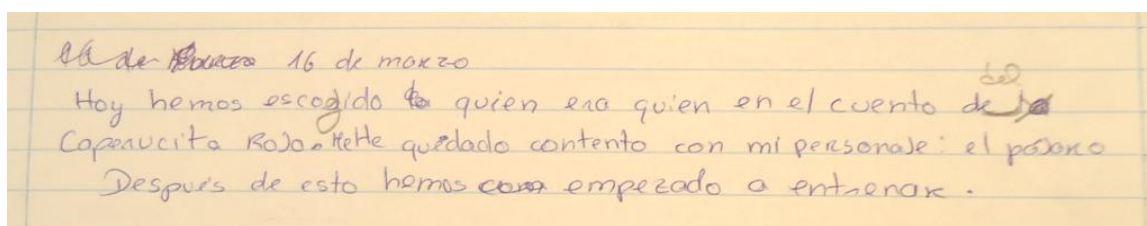 16 de marzo 16 de marzo
Hoy hemos escogido quien era quien en el cuento de del
Caperucita Rojo. MeHe quedado contento con mi personaje: el pájaro
Después de esto hemos com empezado a entrenar.